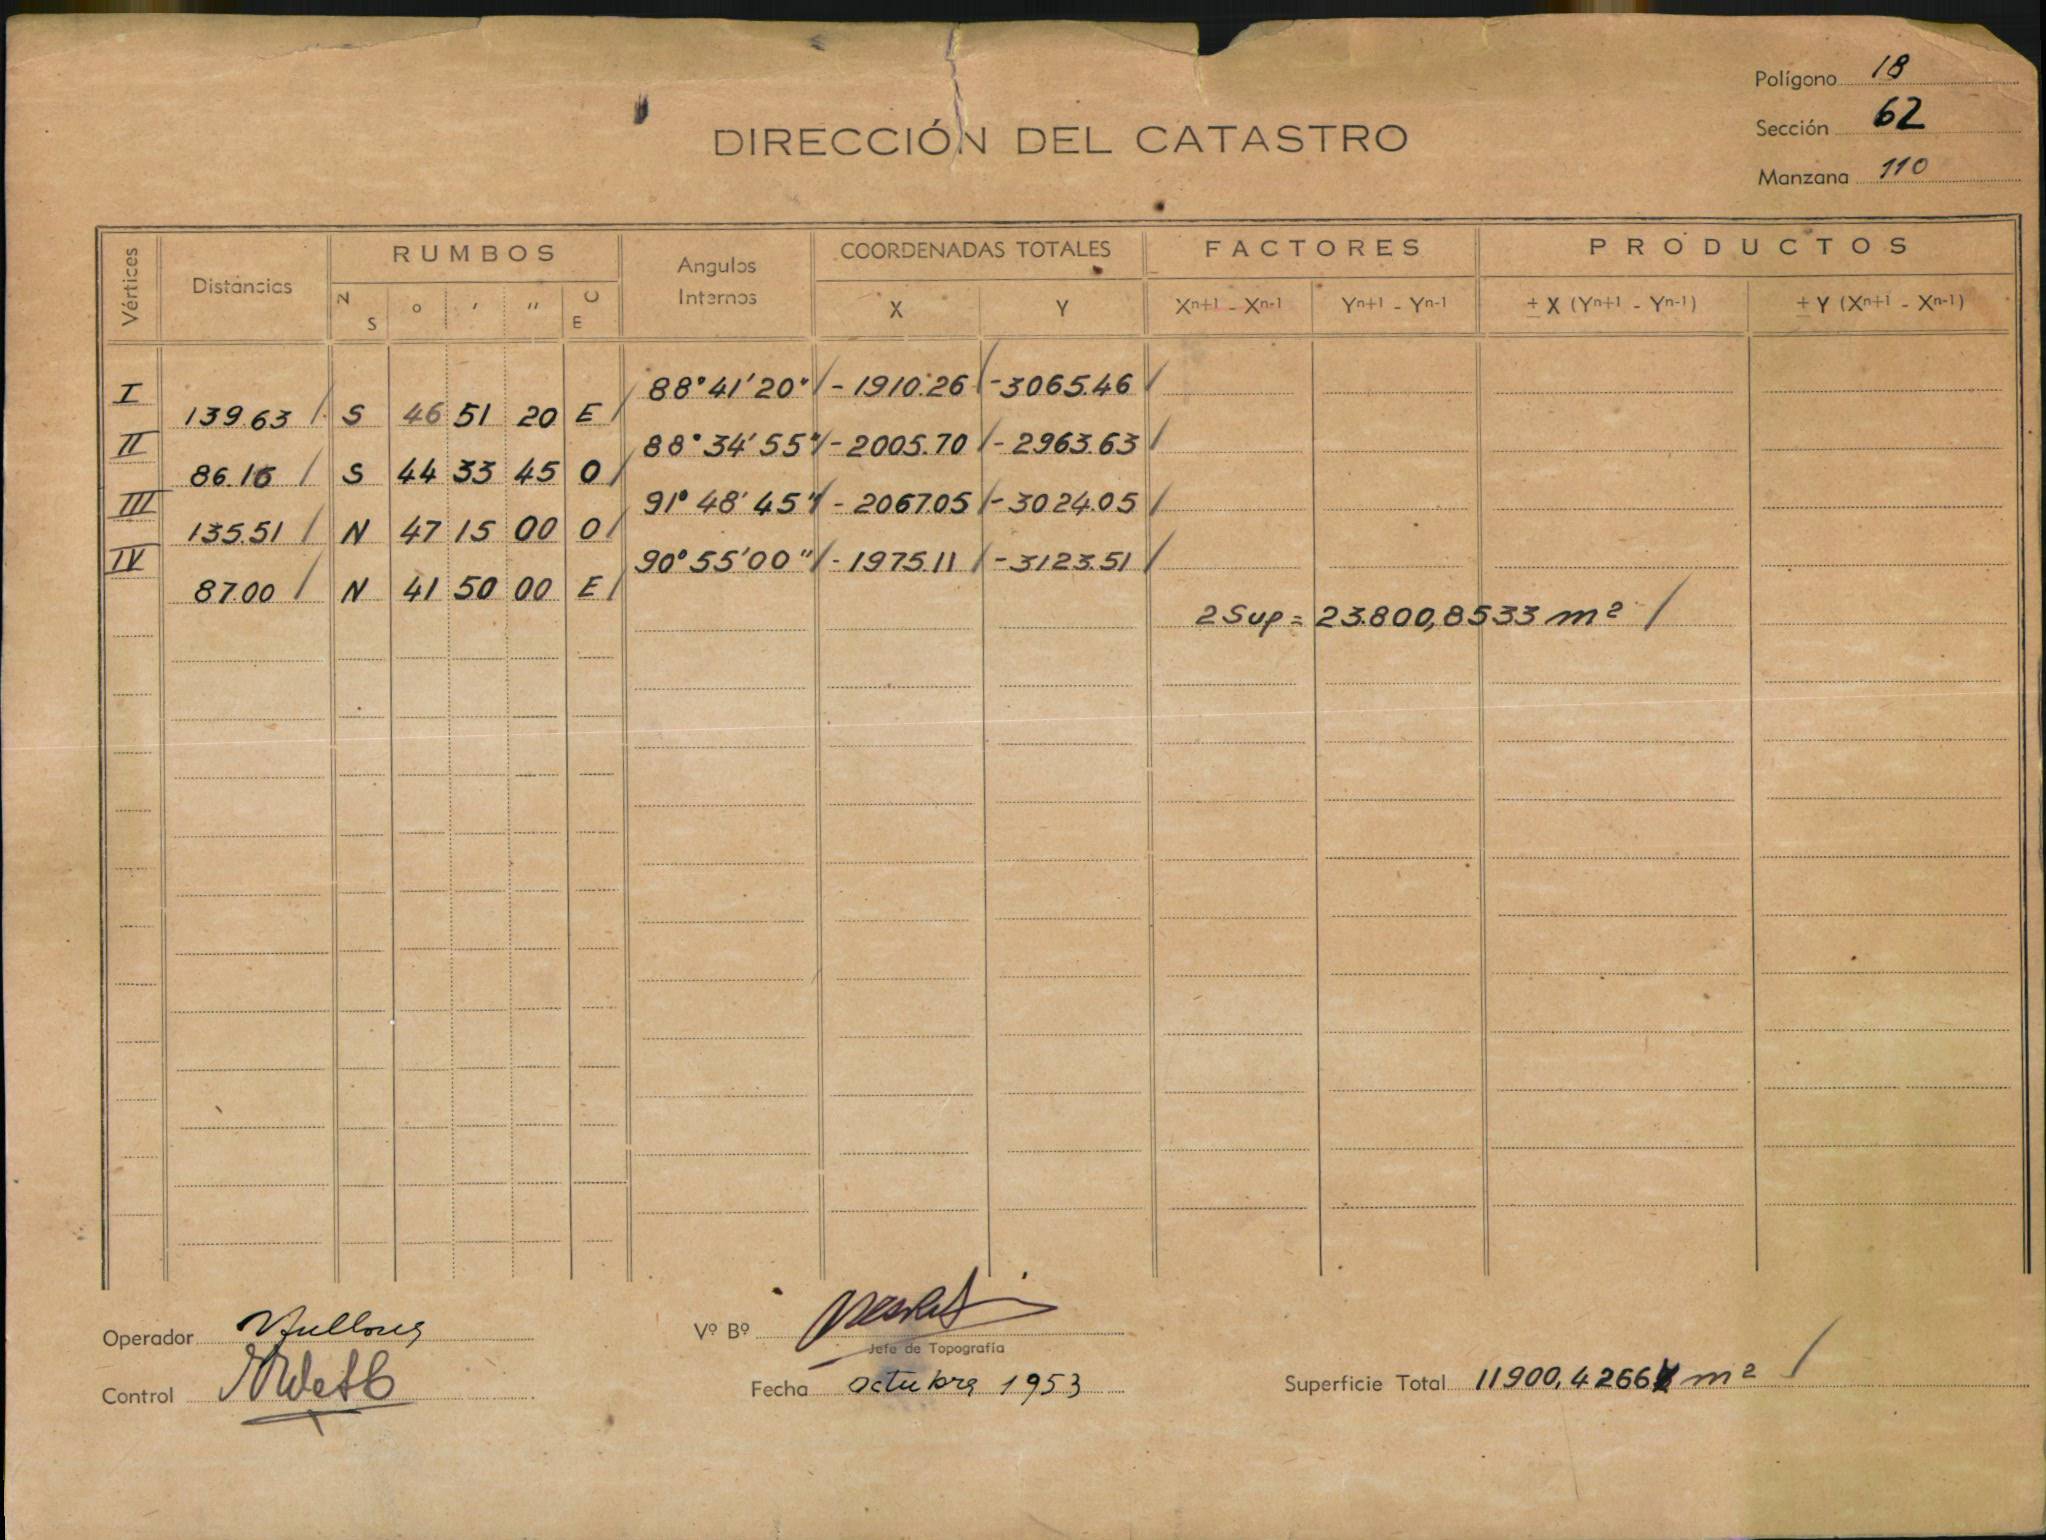 Polígono 18
Sección 62
Manzana 110
DIRECCIÓN DEL CATASTRO
Vértices Distancias RUMBOS Angulos Internos COORDENADAS TOTALES FACTORES PRODUCTOS
N S ° ′ ″ O E X Y Xn+1 - Xn-1 Yn+1 - Yn-1 ± X (Yn+1 - Yn-1) ± Y (Xn+1 - Xn-1)
I 88°41'20" - 1910.26 - 3065.46
139.63 S 46 51 20 E
II 88°34'55" - 2005.70 - 2963.63
86.16 S 44 33 45 O
III 91°48'45" - 2067.05 - 3024.05
135.51 N 47 15 00 O
IV 90°55'00" - 1975.11 - 3123.51
87.00 N 41 50 00 E
2 Sup = 23.800,8533 m²
Operador
Vº Bº
Jefe de Topografía
Control
Fecha octubre 1953
Superficie Total 11900,4266 m²